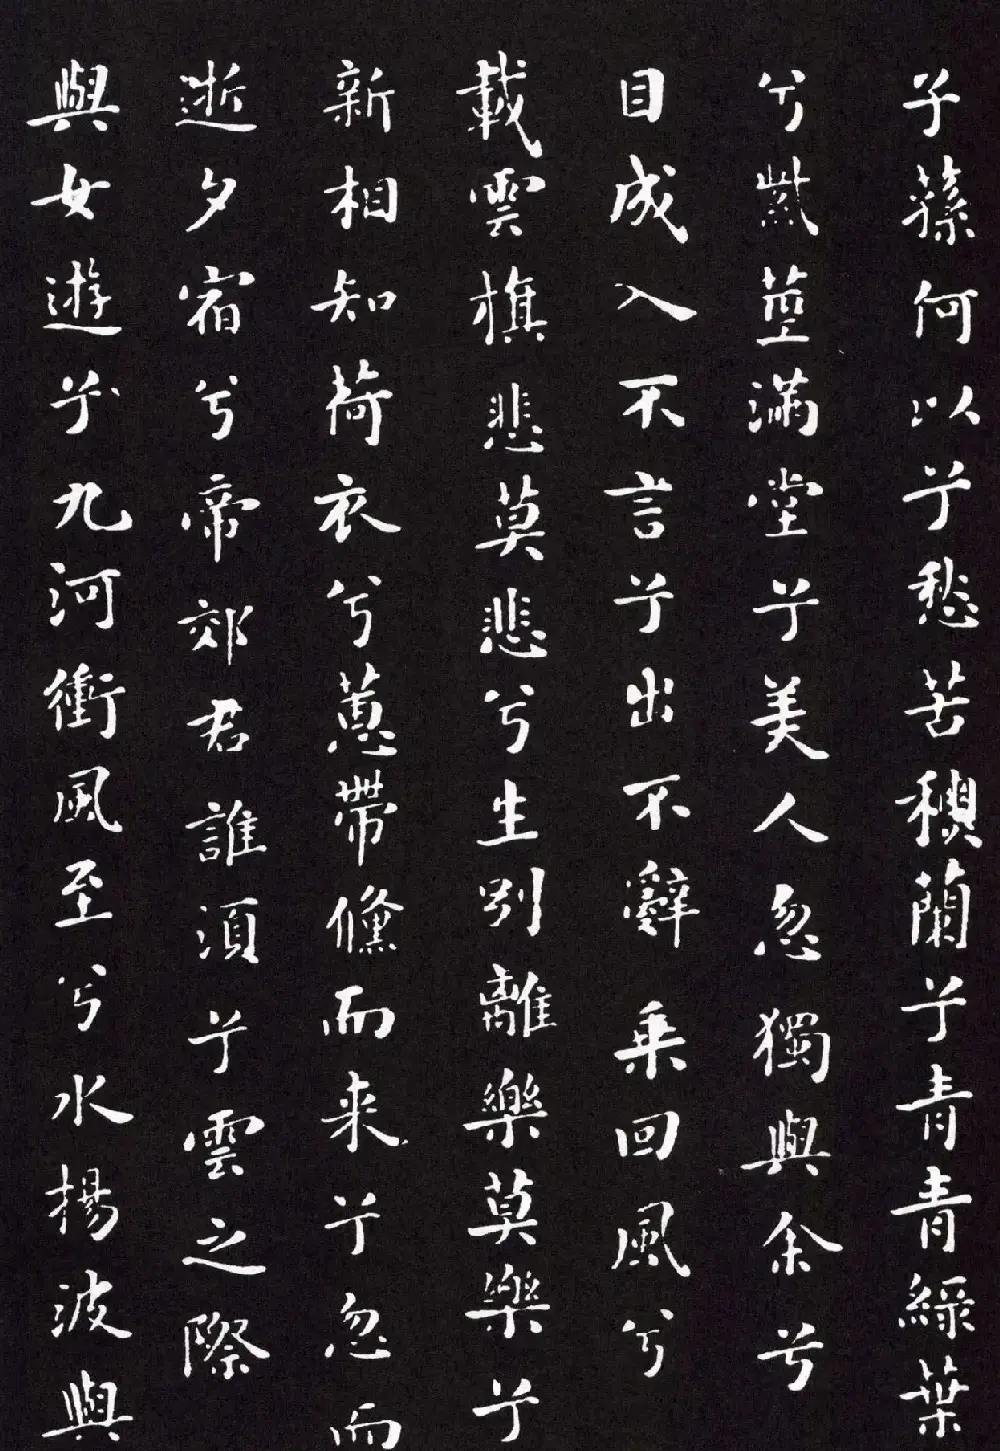 子蓀何以兮愁苦穠蘭兮青青綠葉
兮紫莖滿堂兮美人忽獨與余兮
目成入不言兮出不辭乘回風兮
載雲旗悲莫悲兮生別離樂莫樂兮
新相知荷衣兮蕙帶儵而来兮忽而
逝夕宿兮帝郊君誰須兮雲之際
與女遊兮九河衝風至兮水揚波與